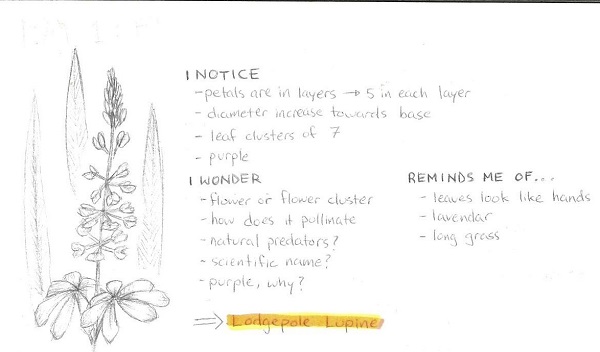 I NOTICE
- petals are in layers → 5 in each layer
- diameter increase towards base
- leaf clusters of 7
- purple
I WONDER
- flower or flower cluster
- how does it pullinate
- natural predators?
- scientific name?
- purple, why?
REMINDS ME OF...
- leaves look like hands
- lavendar
- long grass
⇒ Lodgepole Lupine